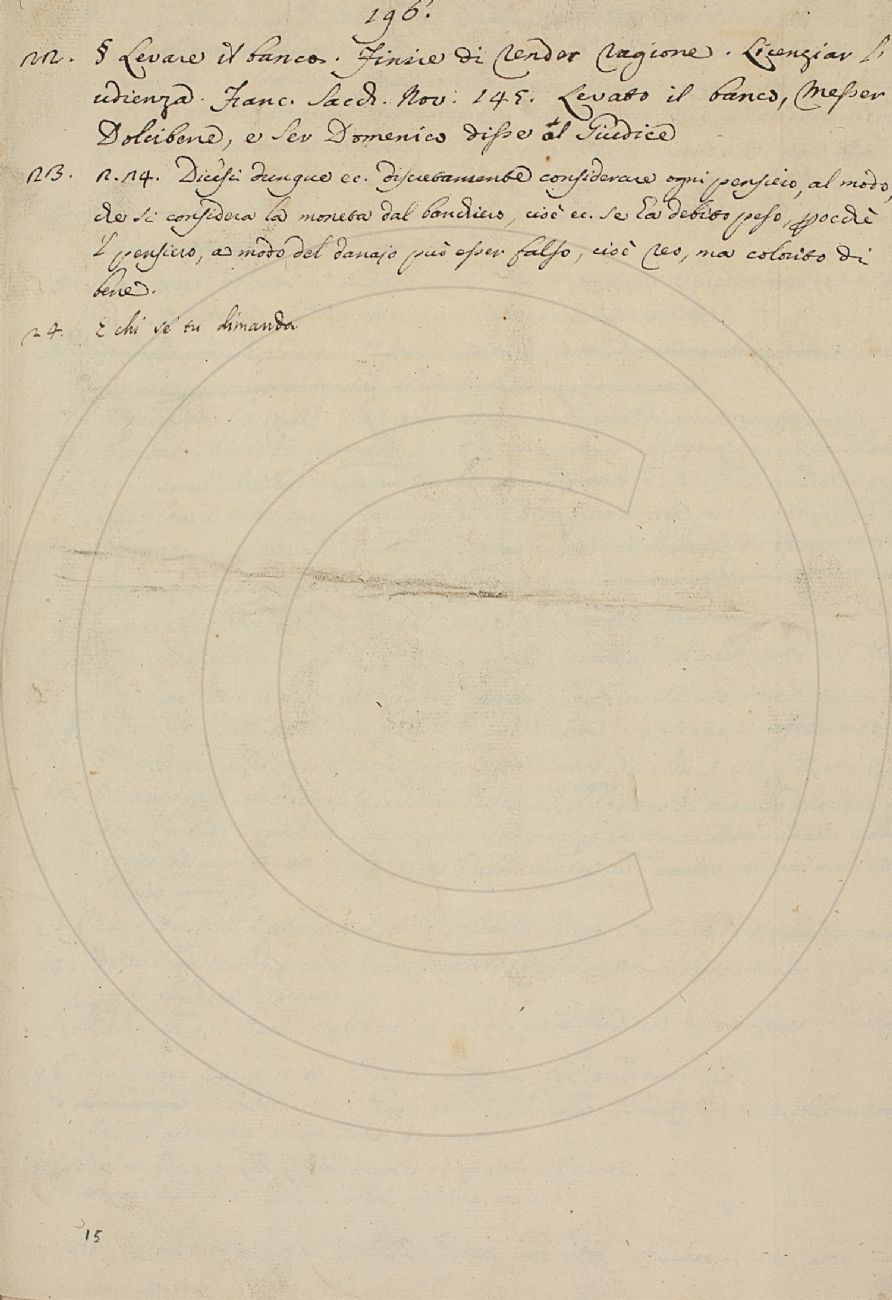 196.
22. § Levare il banco. Finire di render ragione. Licenziar l'
udienza. Franc. Sacch. Nov: 145. Levato il banco, Messer
Dolcibene, e Ser Domenico disse al Giudice
23. 2.24. Dicesi dunque ec. discretamente considerare ogni pensiero, al modo,
che si considera la moneta dal banchiero, cioè ec. se l'à debito peso, perocchè
'l pensiero, a modo del danajo può esser falso, cioè reo, ma colorito di
bene.
24. E chi se' tu dimanda
15